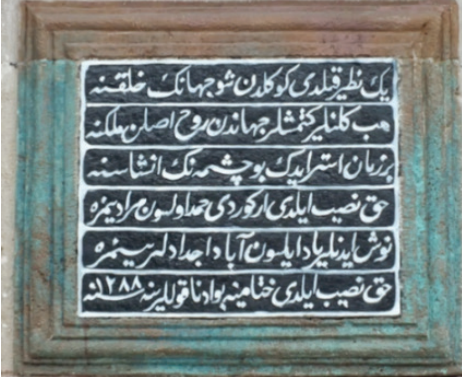 يك نظر قيلدى كوكلدن شو جهانك خلقنه
هب كلنلر كتمشلر جهاندن روح اصلن ملكنه
بر زمان استر ايدك بو چشمه نك انشاسنه
حق نصيب ايلدى اركوردى حمد اولسون مراديمزه
نوش ايدنلر ياد ايلسون آبا و اجدادلريمزه
حق نصيب ايلدى ختامينه بو ادنا قوللرينه ١٢٨٨ سنه